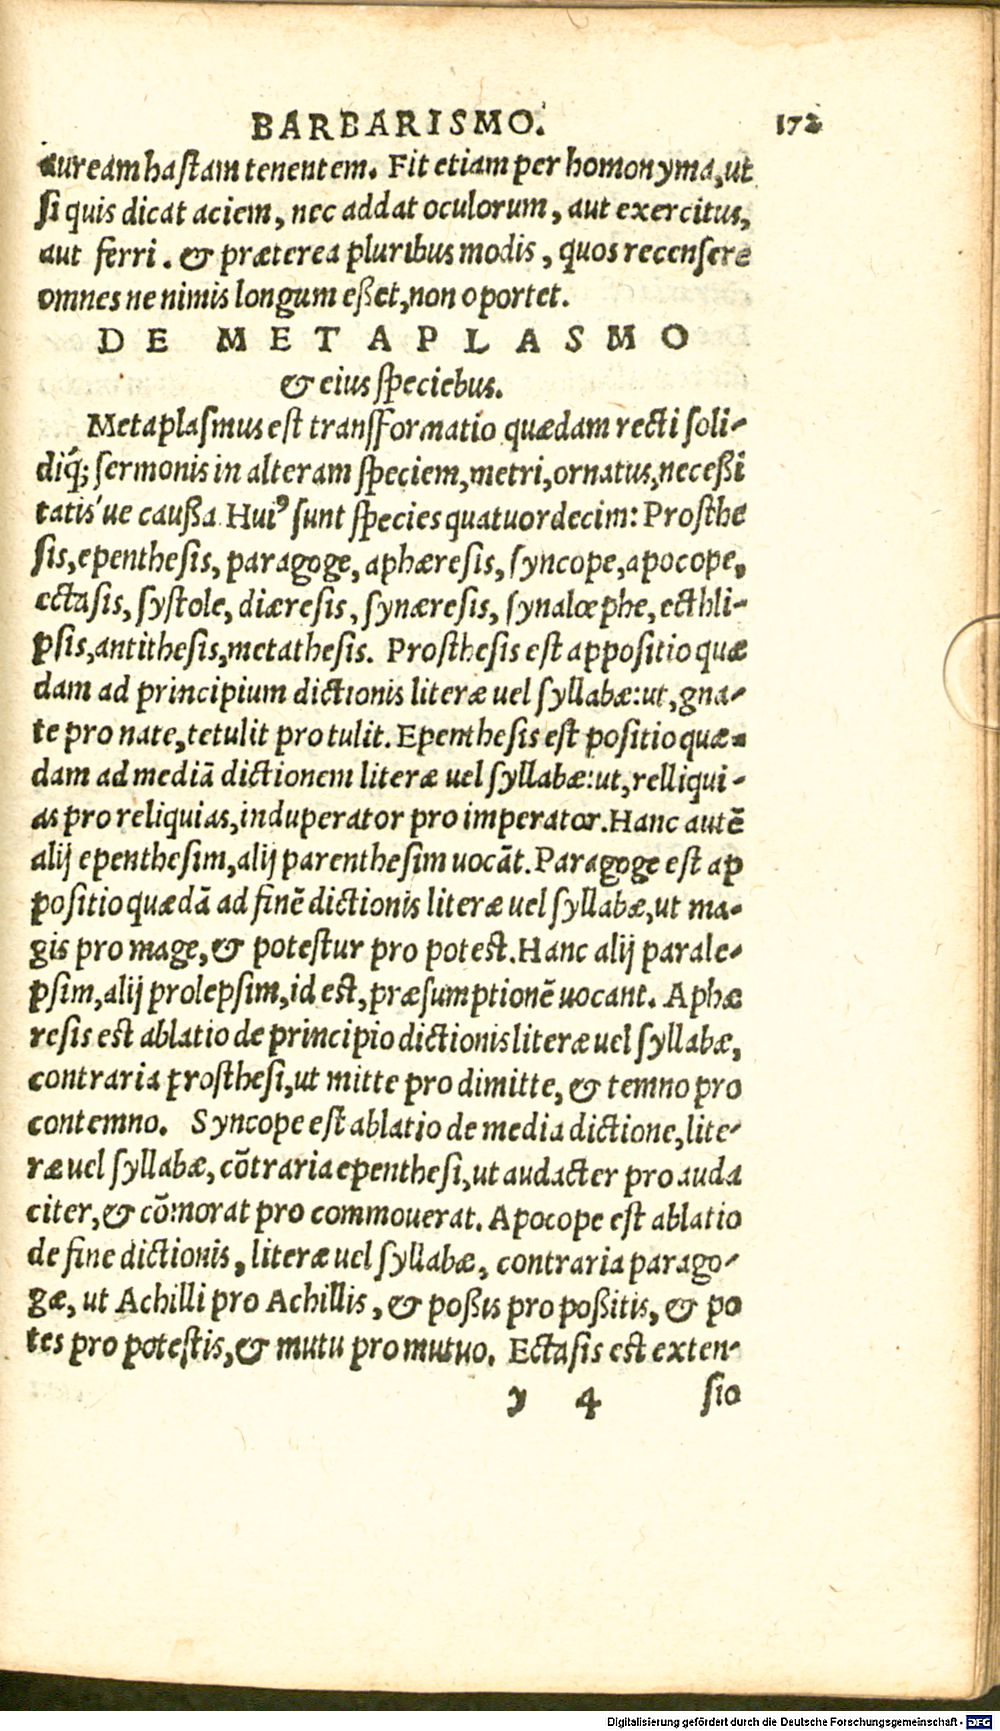 BARBARISMO. 172
auream hastam tenentem. Fit etiam per homonyma, ut
si quis dicat aciem, nec addat oculorum, aut exercitus,
aut ferri. & præterea pluribus modis, quos recensere
omnes ne nimis longum eßet, non oportet.
DE METAPLASMO
& eius speciebus.
Metaplasmus est transsformatio quædam recti soli-
diq́; sermonis in alteram speciem, metri, ornatus, neceßi
tatis'ue caußa. Huiꝰ sunt species quatuordecim: Prosthe
sis, epenthesis, paragoge, aphæresis, syncope, apocope,
ectasis, systole, diæresis, synæresis, synalœphe, ecthli-
psis, antithesis, metathesis. Prosthesis est appositio quæ
dam ad principium dictionis literæ uel syllabæ: ut, gna-
te pro nate, tetulit pro tulit. Epenthesis est positio quæ-
dam ad mediā dictionem literæ uel syllabæ: ut, relliqui-
as pro reliquias, induperator pro imperator. Hanc autē
alij epenthesim, alij parenthesim uocāt. Paragoge est ap
positio quædā ad finē dictionis literæ uel syllabæ, ut ma-
gis pro mage, & potestur pro potest. Hanc alij parale-
psim, alij prolepsim, id est, præsumptionē uocant. Aphæ
resis est ablatio de principio dictionis literæ uel syllabæ,
contraria prosthesi, ut mitte pro dimitte, & temno pro
contemno. Syncope est ablatio de media dictione, lite-
ræ uel syllabæ, cōtraria epenthesi, ut audacter pro auda
citer, & cōmorat pro commouerat. Apocope est ablatio
de fine dictionis, literæ uel syllabæ, contraria parago-
gæ, ut Achilli pro Achillis, & poßis pro poßitis, & po
tes pro potestis, & mutu pro mutuo. Ectasis est exten-
y 4 sio
Digitalisierung gefördert durch die Deutsche Forschungsgemeinschaft - DFG